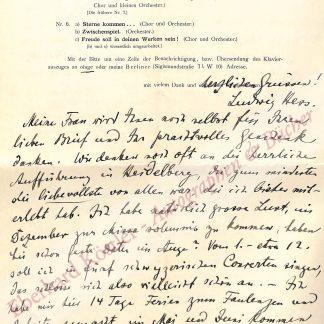 Chor und kleines Orchester)
[Die frühere Nr. 7.]
Nr. 6. a) Sterne kommen . . . (Chor und Orchester.)
b) Zwischenspiel. (Orchester.)
c) Freude soll in deinen Werken sein! (Chor und Orchester.)
[b) und c) wesentlich umgearbeitet.]
Mit der Bitte um eine Zeile der Benachrichtigung, bzw. Übersendung des Klavier-
auszuges an obige oder meine Berliner (Sigismundstraße 71 W 10) Adresse,
mit vielem Dank und herzlichen Grüssen!
Ludwig Hess.
Meine Frau wird Ihnen noch selbst für Ihren
lieben Brief und Ihr prachtvolles Geschenk
danken. Wir denken noch oft an die herrliche
Aufführung in Heidelberg, die zum mindesten
die liebevollste von allen war, die ich bisher mit-
erlebt hab. Ich habe natürlich grosse Lust, im
Dezember zur Missa solemnis zu kommen, haben
Sie schon feste Daten im Auge? Vom 1. – etwa 12.
soll ich fünf schwyzerischen Concerten singen,
also vielleicht schon an. – Ich
habe nur hier 14 Tage Ferien zum Faulenzen und
im Mai und Juni kommen
Eberhard Köstler Autographen & Bücher